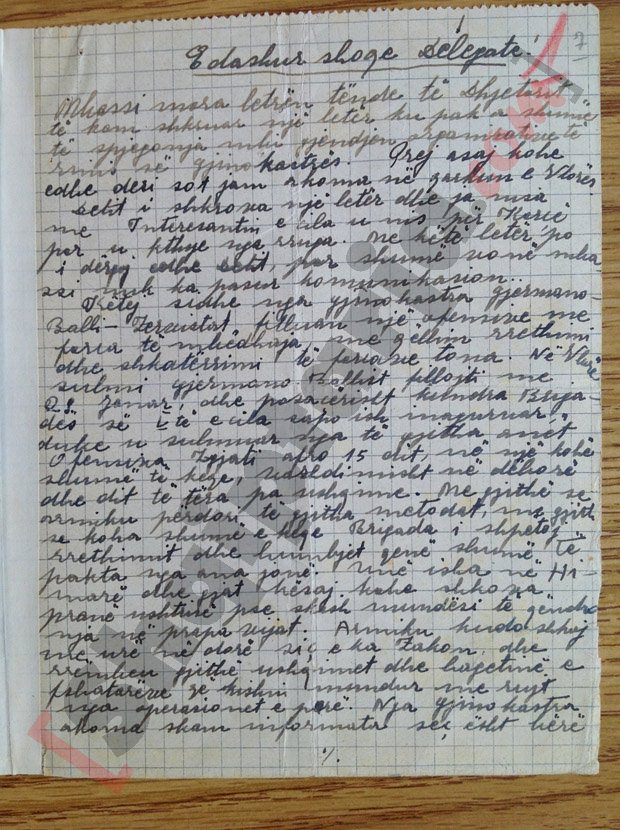 7
E dashur shoqe Delegate!
Mbassi mora letrën tënde të Dhjetorit
të kam shkruar një letër ku pak a shumë
të spjegonja mbi gjendjen organizative të
rinis së gjinokastres. Prej asaj kohe
edhe deri sot jam akoma në qarkun e Vlorës
Letit i shkrova një letër dhe ja nisa
me Interesantin e cila u nis për Korçë
por u kthye nga rruga. Me këtë letër po
i dërgoj edhe Letit, por shumë vonë mba
ssi nuk ka pasur komunikasion.
Këtej sidhe nga gjinokastra gjermano-
Balli-Zervistat filluan një ofensive me
forca të mbëdhaja, me qëllim rrethimi
dhe shkatërrimi të forcave tona. Në Vlorë
sulmi gjermano-Ballist filloj me
28 Janar, dhe posaçërisht kundra Briga-
dës së V të e cila sapo ish inaguruar,
duke u sulmuar nga të gjitha anët
Ofensiva zgjati afro 15 dit, në një kohë
shumë të keqe, në dëborë
dhe dit të tëra pa ushqime. Me gjithë se
armiku përdori të gjitha metodat, me gjith
se koha shumë e keqe Brigada i shpëtoj
rrethimit dhe humbjet qenë shumë të
pakta nga ana jonë. Unë isha në Hi-
marë dhe gjat kësaj kohe shkova
pranë ushtris pse skesh mundësi të qëndro
nja në prapavijat. Armiku kudo shkoj
me urë në dorë siç e ka zakon, dhe
rrëmbeu gjithë ushqimet dhe bagëtinë e
fshatarëve që kishin mundur me rujt
nga operasionet e parë. Nga gjinokastra
akoma skam informata seç ësht bërë
·/.